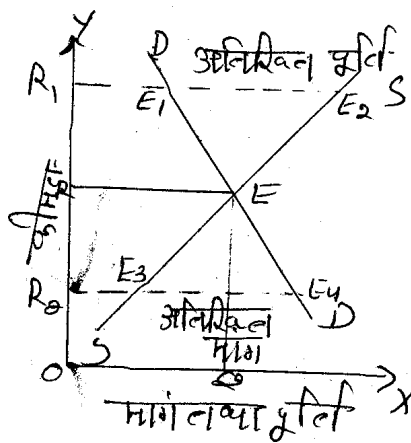 Y
D
अतिरिक्त पूर्ति
R₁
E₁
E₂
S
कीमत
P
E
R₀
E₃
E₄
अतिरिक्त
मांग
S
D
O
Q
X
मांग तथा पूर्ति